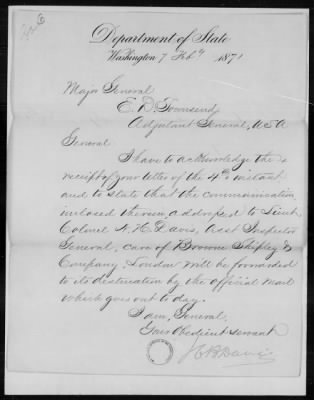 Department of State
Washington 7 Feby 1871
Major General
E. D. Townsend
Adjutant General, USA
General
I have to acknowledge the
receipt of your letter of the 4th instant
and to state that the communication
inclosed therein, addressed to Lieut.
Colonel N. H. Davis, Asst Inspector
General, care of Browne Shipley &
Company, London will be forwarded
to its destination by the official mail
which goes out to day.
I am, General,
Your Obedient servant
J C B Davis